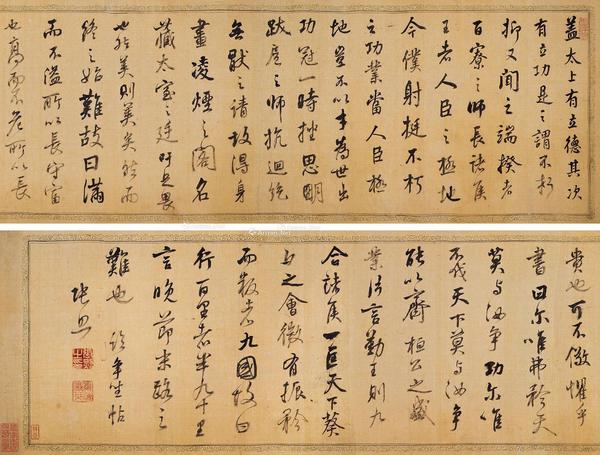 蓋太上有立德其次
有立功是之謂不朽
抑又聞之端揆者
百寮之師長諸侯
王者人臣之極地
今僕射挺不朽
之功業當人臣極
地豈不以才為世出
功冠一時挫思明
跋扈之師抗迴紇
無厭之請故得身
畫凌煙之閣名
藏太室之廷吁足畏
也然美則美矣然而
終之始難故曰滿
而不溢所以長守富
也高而不危所以長
貴也可不儆懼乎
書曰尔唯弗矜天
莫与汝争功尔唯
不伐天下莫与汝争
能以齊桓公之盛
業片言勤王則九
合諸侯一匡天下葵
丘之會微有振矜
而叛者九國故曰
行百里者半九十里
言晚節末路之
難也 臨争坐帖
張照